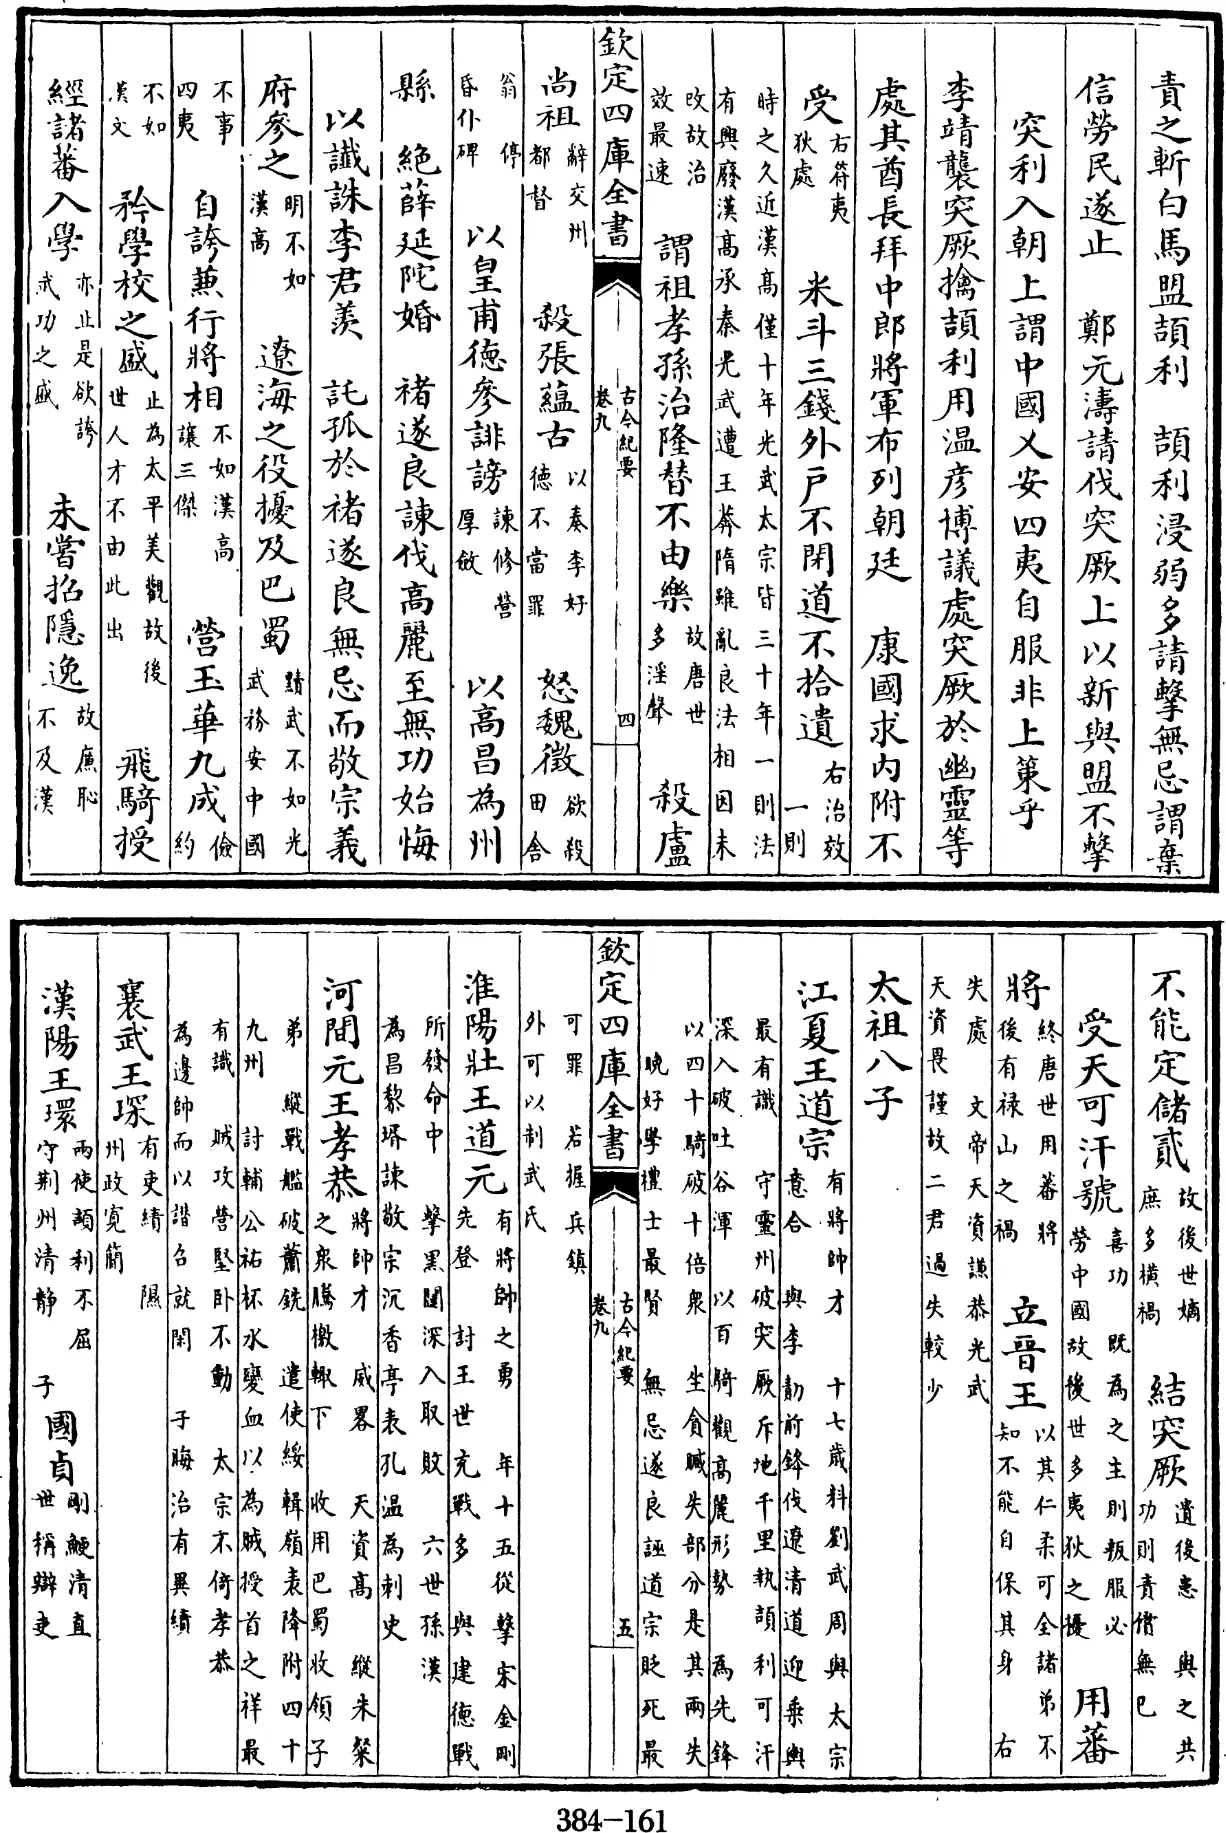 責之斬白馬盟頡利　頡利浸弱多請擊無忌謂棄
信勞民遂止　鄭元濤請伐突厥上以新與盟不擊
突利入朝上謂中國乂安四夷自服非上策乎
李靖襲突厥擒頡利用温彦博議處突厥於幽靈等
處其酋長拜中郎將軍布列朝廷　康國求内附不
受右符夷狄處　米斗三錢外户不閉道不拾遺右治效一則
時之久近漢高僅十年光武太宗皆三十年一則法
有興廢漢高承秦光武遭王莽隋雖亂良法相因未
攺故治效最速　謂祖孝孫治隆替不由樂故唐世多淫聲　殺盧
欽定四庫全書　古今紀要　卷九　四
尚祖辭交州都督　殺張蘊古以奏李好德不當罪　怒魏徵欲殺田舍
翁停昏仆碑　以皇甫德參誹謗諫修營厚斂　以高昌為州
縣　絶薛延陀婚　褚遂良諫伐高麗至無功始悔
以讖誅李君羨　託孤於褚遂良無忌而敬宗義
府參之明不如漢高　遼海之役擾及巴蜀黷武不如光武務安中國
不事四夷　自誇兼行將相不如漢高讓三傑　營玉華九成儉約
不如漢文　矜學校之盛止為太平美觀故後世人才不由此出　飛騎授
經諸蕃入學亦止是欲誇武功之盛　未嘗招隱逸故廉恥不及漢
不能定儲貳故後世嫡庶多横禍　結突厥遺後患　與之共功則責償無已
受天可汗號喜功　既為之主則叛服必勞中國故後世多夷狄之擾　用蕃
將終唐世用蕃將後有禄山之禍　立晉王以其仁柔可全諸弟不知不能自保其身　右
失處　文帝天資謙恭光武
天資畏謹故二君過失較少
太祖八子
江夏王道宗有將帥才　十七歲料劉武周與太宗意合　與李勣前鋒伐遼清道迎乘輿
最有識　守靈州破突厥斥地千里執頡利可汗
深入破吐谷渾　以百騎觀高麗形勢　為先鋒
以四十騎破十倍衆　坐貪贓失部分是其兩失
晩好學禮士最賢　無忌遂良誣道宗貶死最
欽定四庫全書　古今紀要　卷九　五
可罪　若握兵鎮
外可以制武氏
淮陽壯王道元有將帥之勇　年十五從擊宋金剛先登　討王世充戰多　與建德戰
所發命中　擊黑闥深入取敗　六世孫漢
為昌黎壻諫敬宗沉香亭表孔温為刺史
河間元王孝恭將帥才　威畧　天資高　縱朱粲之衆騰檄輙下　收用巴蜀收領子
弟　縱戰艦破蕭銑　遣使綏輯嶺表降附四十
九州　討輔公祐杯水變血以為賊授首之祥最
有識　賊攻營堅卧不動　太宗不倚孝恭
為邊帥而以諧召就閑　子晦治有異績
襄武王琛有吏績　隰州政寛簡
漢陽王瓌兩使頡利不屈守荆州清静　子國貞剛鯁清直世稱辦吏
384-161